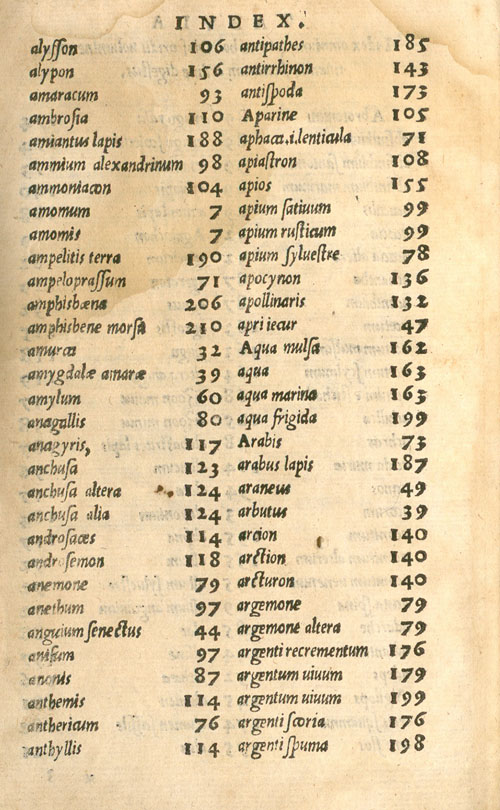 INDEX.
alyſſon 106
alypon 156
amaracum 93
ambroſia 110
amiantus lapis 188
ammium alexandrinum 98
ammoniacon 104
amomum 7
amomis 7
ampelitis terra 190
ampelopraſſum 71
amphisbæna 206
amphisbene morſa 210
amurca 32
amygdalæ amaræ 39
amylum 60
anagallis 80
anagyris, 117
anchuſa 123
anchuſa altera 124
anchuſa alia 124
androſaces 114
androſemon 118
anemone 79
anethum 97
anguium ſenectus 44
aniſum 97
anonis 87
anthemis 114
anthericum 76
anthyllis 114
antipathes 185
antirrhinon 143
antiſpoda 173
Aparine 105
aphaca.i.lenticula 71
apiaſtron 108
apios 155
apium ſatiuum 99
apium ruſticum 99
apium ſylueſtre 78
apocynon 136
apollinaris 132
apri iecur 47
Aqua mulſa 162
aqua 163
aqua marina 163
aqua frigida 199
Arabis 73
arabus lapis 187
araneus 49
arbutus 39
arcion 140
arction 140
arcturon 140
argemone 79
argemone altera 79
argenti recrementum 176
argentum uiuum 179
argentum uiuum 199
argenti ſcoria 176
argenti ſpuma 198